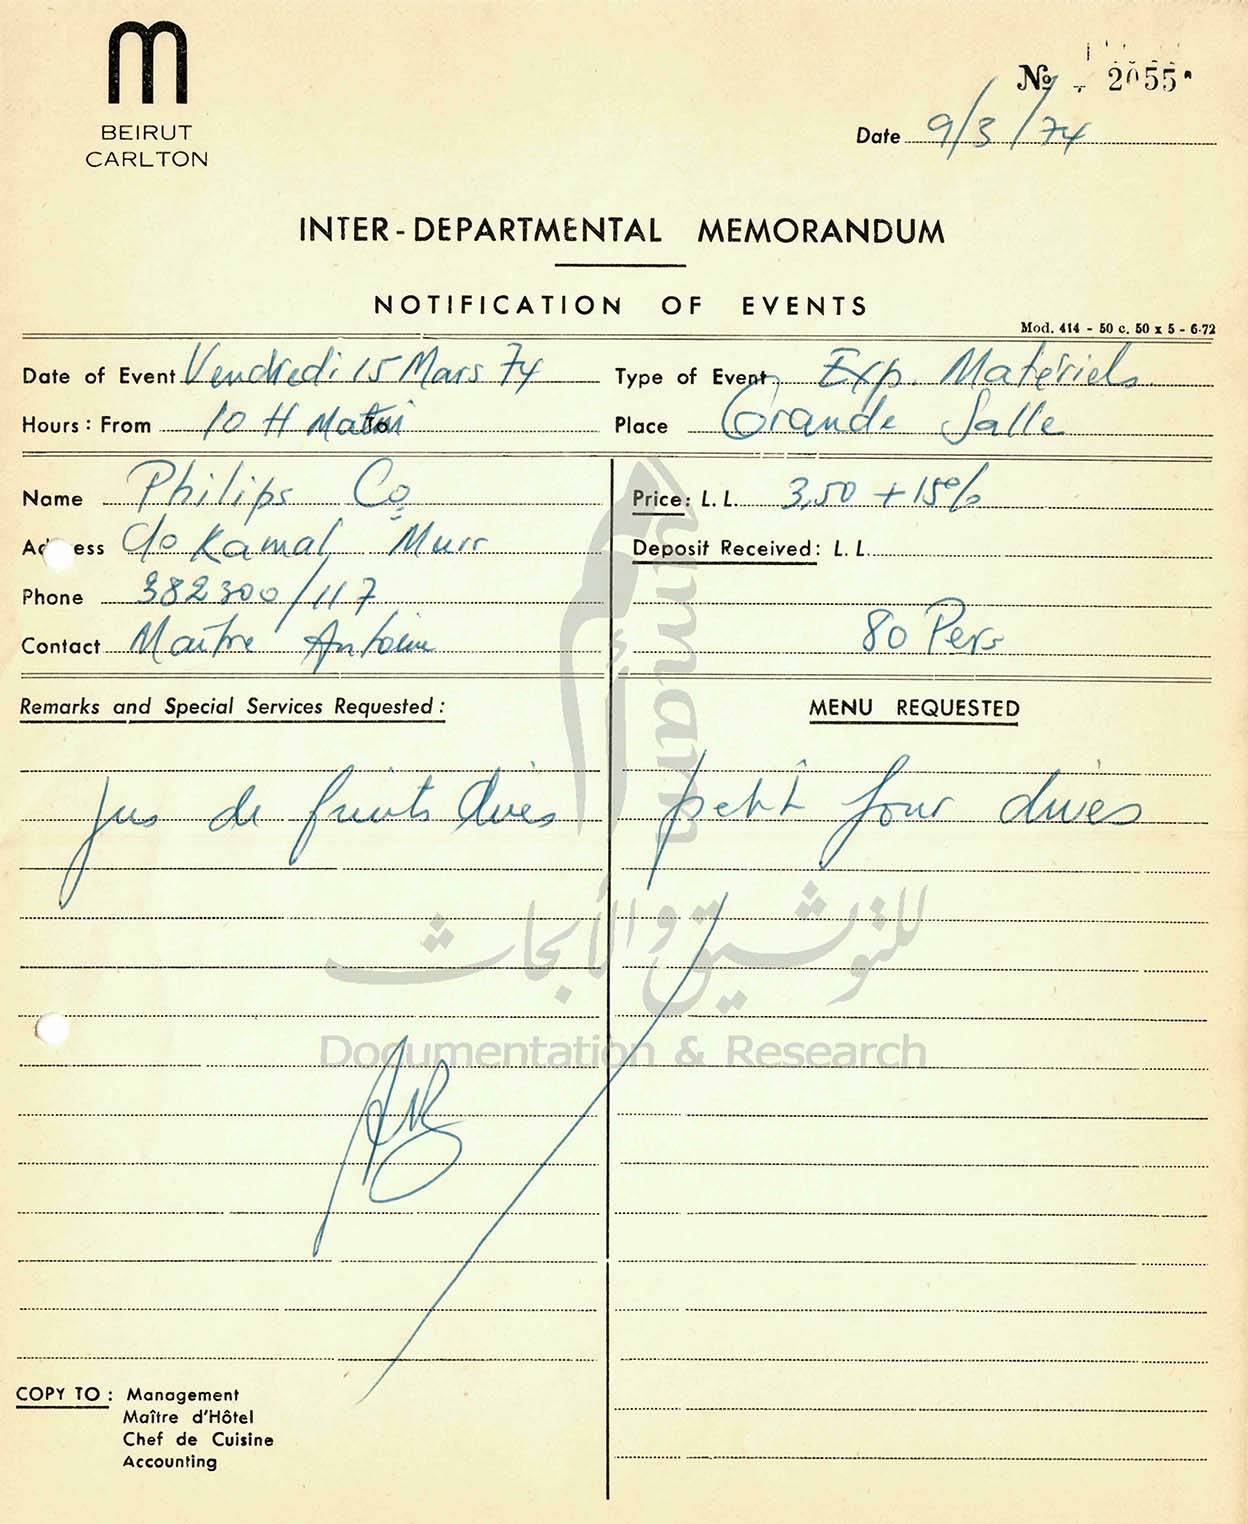 BEIRUT
CARLTON
№ 2055
Date 9/3/74
INTER-DEPARTMENTAL MEMORANDUM
NOTIFICATION OF EVENTS
Mod. 414 - 50 c. 50 x 5 - 6-72
Date of Event Vendredi 15 Mars 74 Type of Event Exp. Matériels
Hours: From 10 H Matin To Place Grande Salle
Name Philips Co Price: L. L. 3,50 + 15%
Address c/o Kamal Murr Deposit Received: L. L.
Phone 382300/117
Contact Maitre Antoine 80 Pers
Remarks and Special Services Requested: MENU REQUESTED
jus de fruits divés petit four divés
ummam
للتوثيق والأبحاث
Documentation & Research
COPY TO: Management
Maître d'Hôtel
Chef de Cuisine
Accounting